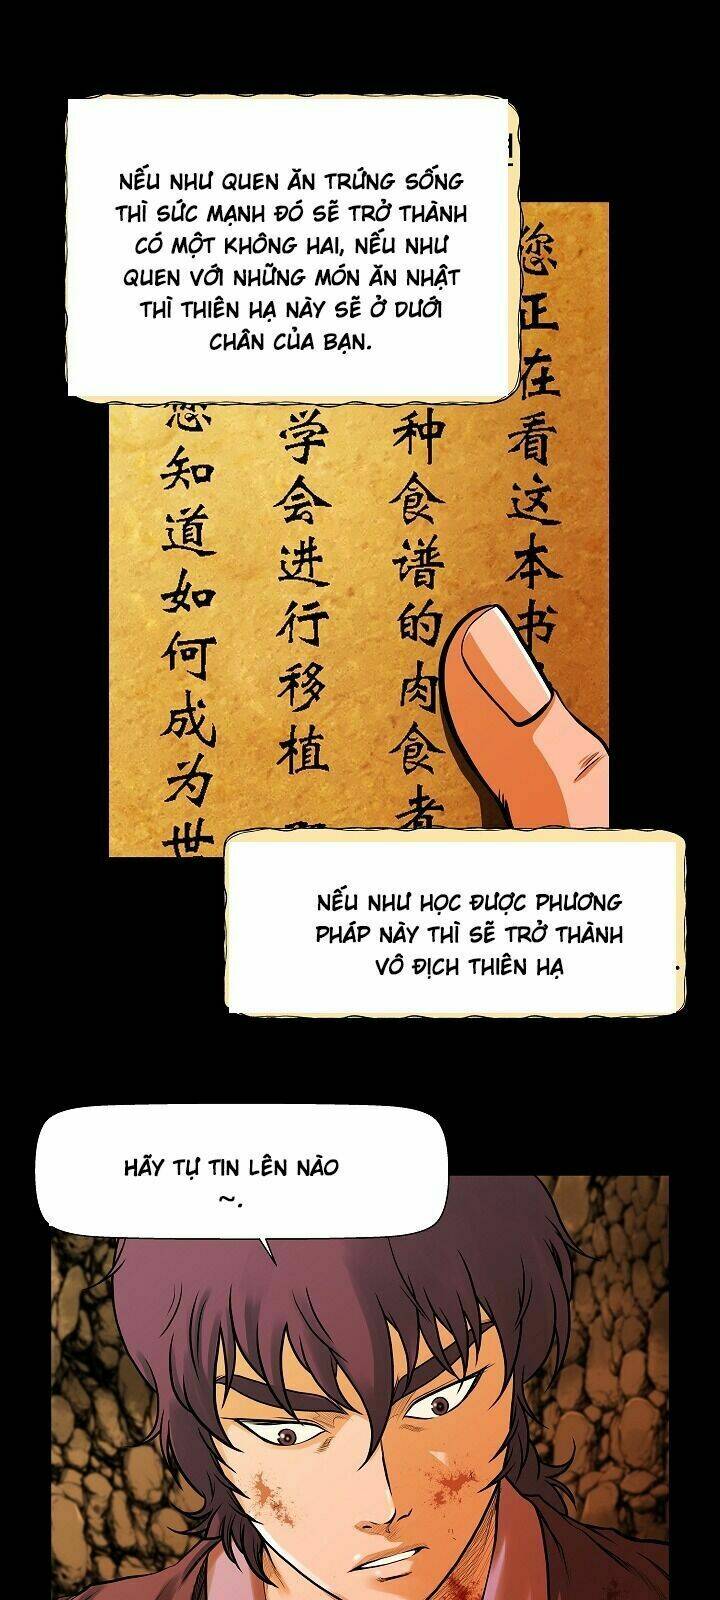 NẾU NHƯ QUEN ĂN TRỨNG SỐNG
THÌ SỨC MẠNH ĐÓ SẼ TRỞ THÀNH
CÓ MỘT KHÔNG HAI, NẾU NHƯ
QUEN VỚI NHỮNG MÓN ĂN NHẬT
THÌ THIÊN HẠ NÀY SẼ Ở DƯỚI
CHÂN CỦA BẠN.
您正在看这本书
种食谱的肉食者
学会进行移植
您知道如何成为世
NẾU NHƯ HỌC ĐƯỢC PHƯƠNG
PHÁP NÀY THÌ SẼ TRỞ THÀNH
VÔ ĐỊCH THIÊN HẠ
HÃY TỰ TIN LÊN NÀO
~.